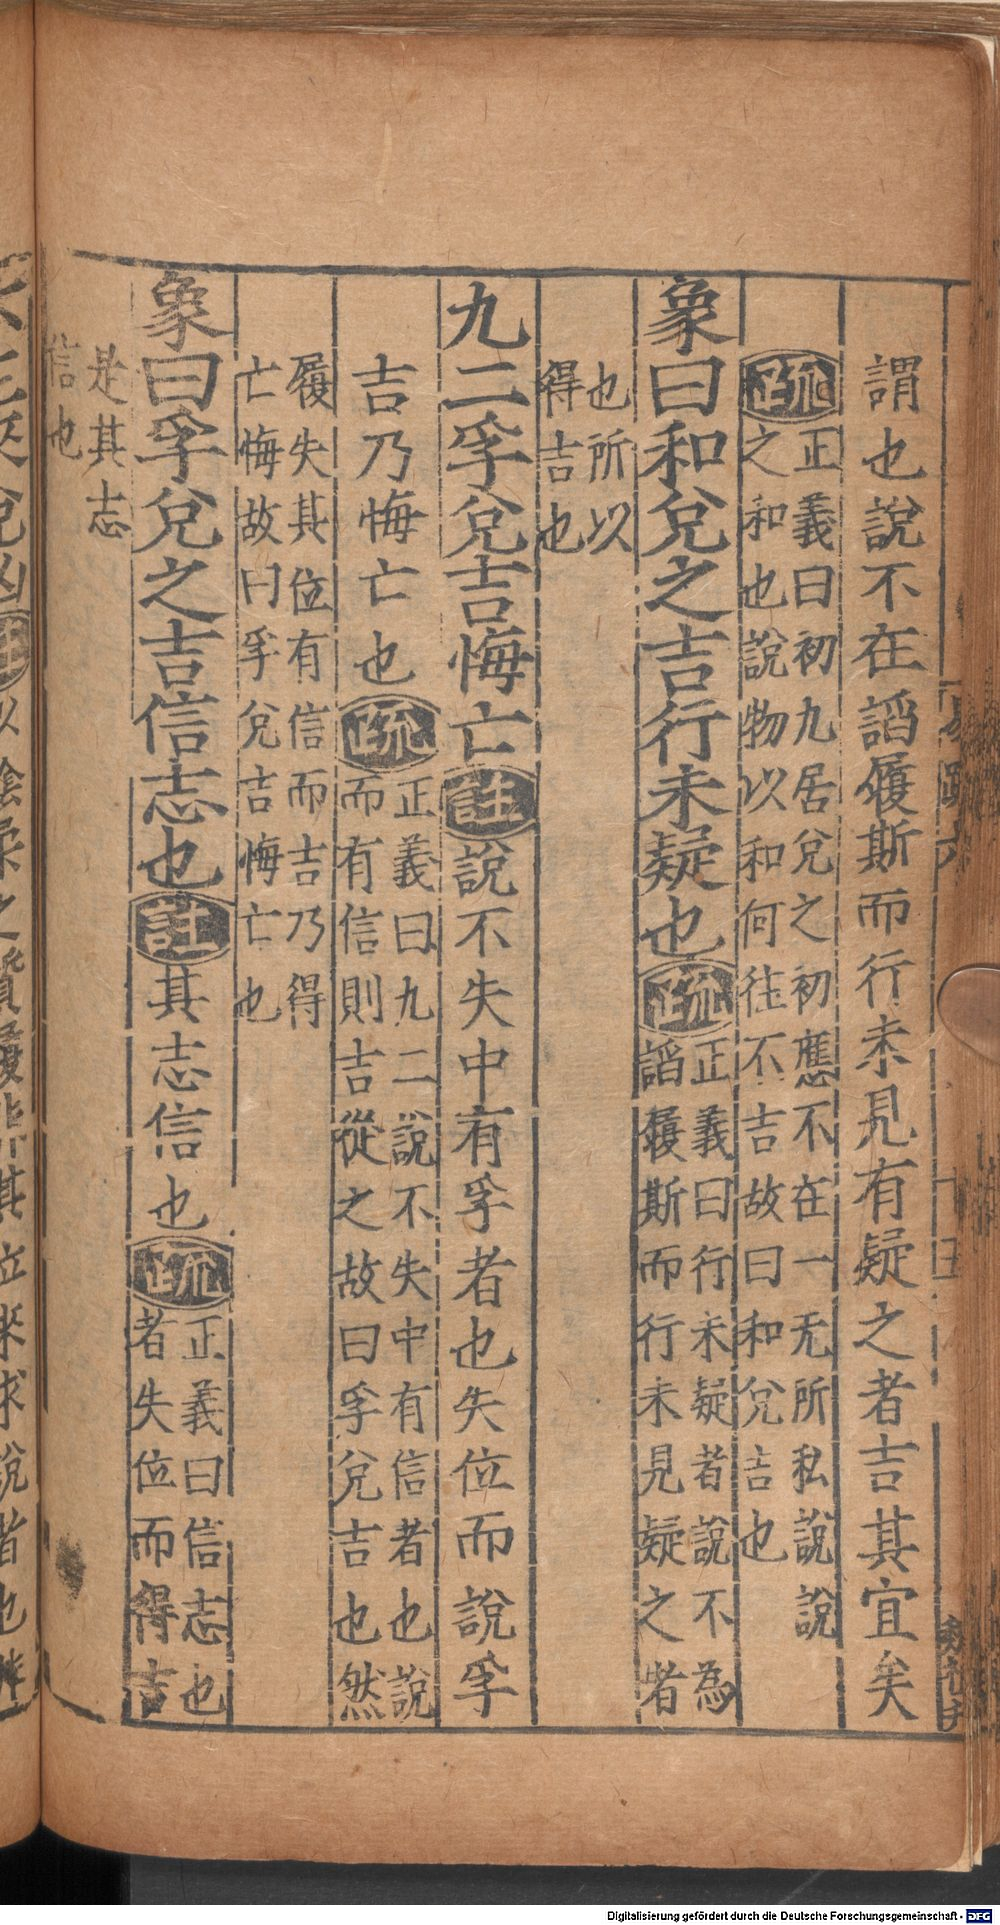 謂也說不在謟履斯而行未見有疑之者吉其宜矣
疏正義曰初九居兌之初應不在一无所私說說
之和也說物以和何往不吉故曰和兌吉也
象曰和兌之吉行未疑也疏正義曰行未疑者說不為
謟履斯而行未見疑之者
也所以
得吉也
九二孚兌吉悔亡註說不失中有孚者也失位而說孚
吉乃悔亡也疏正義曰九二說不失中有信者也說
而有信則吉從之故曰孚兌吉也然
履失其位有信而吉乃得
亡悔故曰孚兌吉悔亡也
象曰孚兌之吉信志也註其志信也疏正義曰信志也
者失位而得吉
是其志
信也
兌凶註以陰柔之質履非其位來求說者也
Digitalisierung gefördert durch die Deutsche Forschungsgemeinschaft - DFG